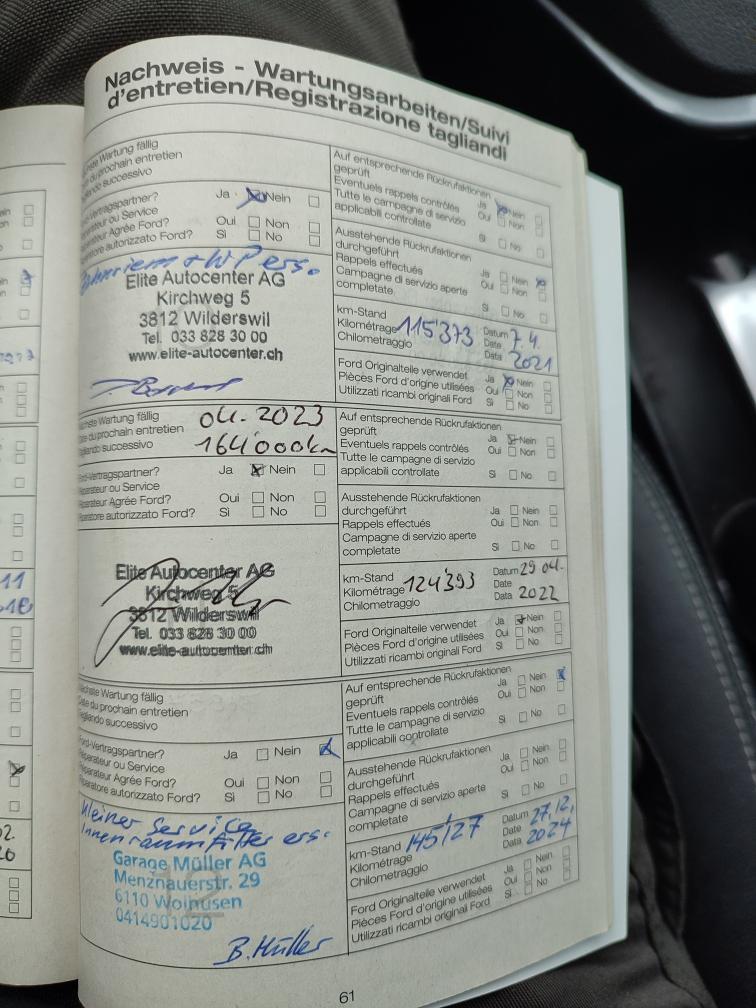 Nachweis - Wartungsarbeiten/Suivi
d'entretien/Registrazione tagliandi
Wartung fällig
prochain entretien
successivo
Ja Nein
Oui Non
Sì No
Vertragspartner?
ou Service
Agrée Ford?
autorizzato Ford?
+ W Pers.
Elite Autocenter AG
Kirchweg 5
3812 Wilderswil
Tel. 033 828 30 00
www.elite-autocenter.ch
Auf entsprechende Rückrufaktionen
geprüft
Eventuels rappels contrôlés
Tutte le campagne di servizio
applicabili controllate
Ja Nein
Oui Non
Sì No
Ausstehende Rückrufaktionen
durchgeführt
Rappels effectués
Campagne di servizio aperte
completate
Ja Nein
Oui Non
Sì No
km-Stand
Kilométrage 115'373
Chilometraggio
Datum 7.4.
Date
Data 2021
Ford Originalteile verwendet
Pièces Ford d'origine utilisées
Utilizzati ricambi originali Ford
Ja Nein
Oui Non
Sì No
Wartung fällig 04. 2023
du prochain entretien
successivo 164'000km
Vertragspartner?
ou Service
Agrée Ford?
autorizzato Ford?
Ja Nein
Oui Non
Sì No
Elite Autocenter AG
Kirchweg 5
3812 Wilderswil
Tel. 033 828 30 00
www.elite-autocenter.ch
Auf entsprechende Rückrufaktionen
geprüft
Eventuels rappels contrôlés
Tutte le campagne di servizio
applicabili controllate
Ja Nein
Oui Non
Sì No
Ausstehende Rückrufaktionen
durchgeführt
Rappels effectués
Campagne di servizio aperte
completate
Ja Nein
Oui Non
Sì No
km-Stand
Kilométrage 124'393
Chilometraggio
Datum 29 04.
Date
Data 2022
Ford Originalteile verwendet
Pièces Ford d'origine utilisées
Utilizzati ricambi originali Ford
Ja Nein
Oui Non
Sì No
Wartung fällig
du prochain entretien
successivo
Ford-Vertragspartner?
ou Service
Agrée Ford?
autorizzato Ford?
Ja Nein
Oui Non
Sì No
Kleiner Service
Innenraumfilter ers.
Garage Müller AG
Menznauerstr. 29
6110 Wolhusen
0414901020
B. Müller
Auf entsprechende Rückrufaktionen
geprüft
Eventuels rappels contrôlés
Tutte le campagne di servizio
applicabili controllate
Ja Nein
Oui Non
Sì No
Ausstehende Rückrufaktionen
durchgeführt
Rappels effectués
Campagne di servizio aperte
completate
Ja Nein
Oui Non
Sì No
km-Stand 145'127
Kilométrage
Chilometraggio
Datum 27.12.
Date
Data 2024
Ford Originalteile verwendet
Pièces Ford d'origine utilisées
Utilizzati ricambi originali Ford
Ja Nein
Oui Non
Sì No
61